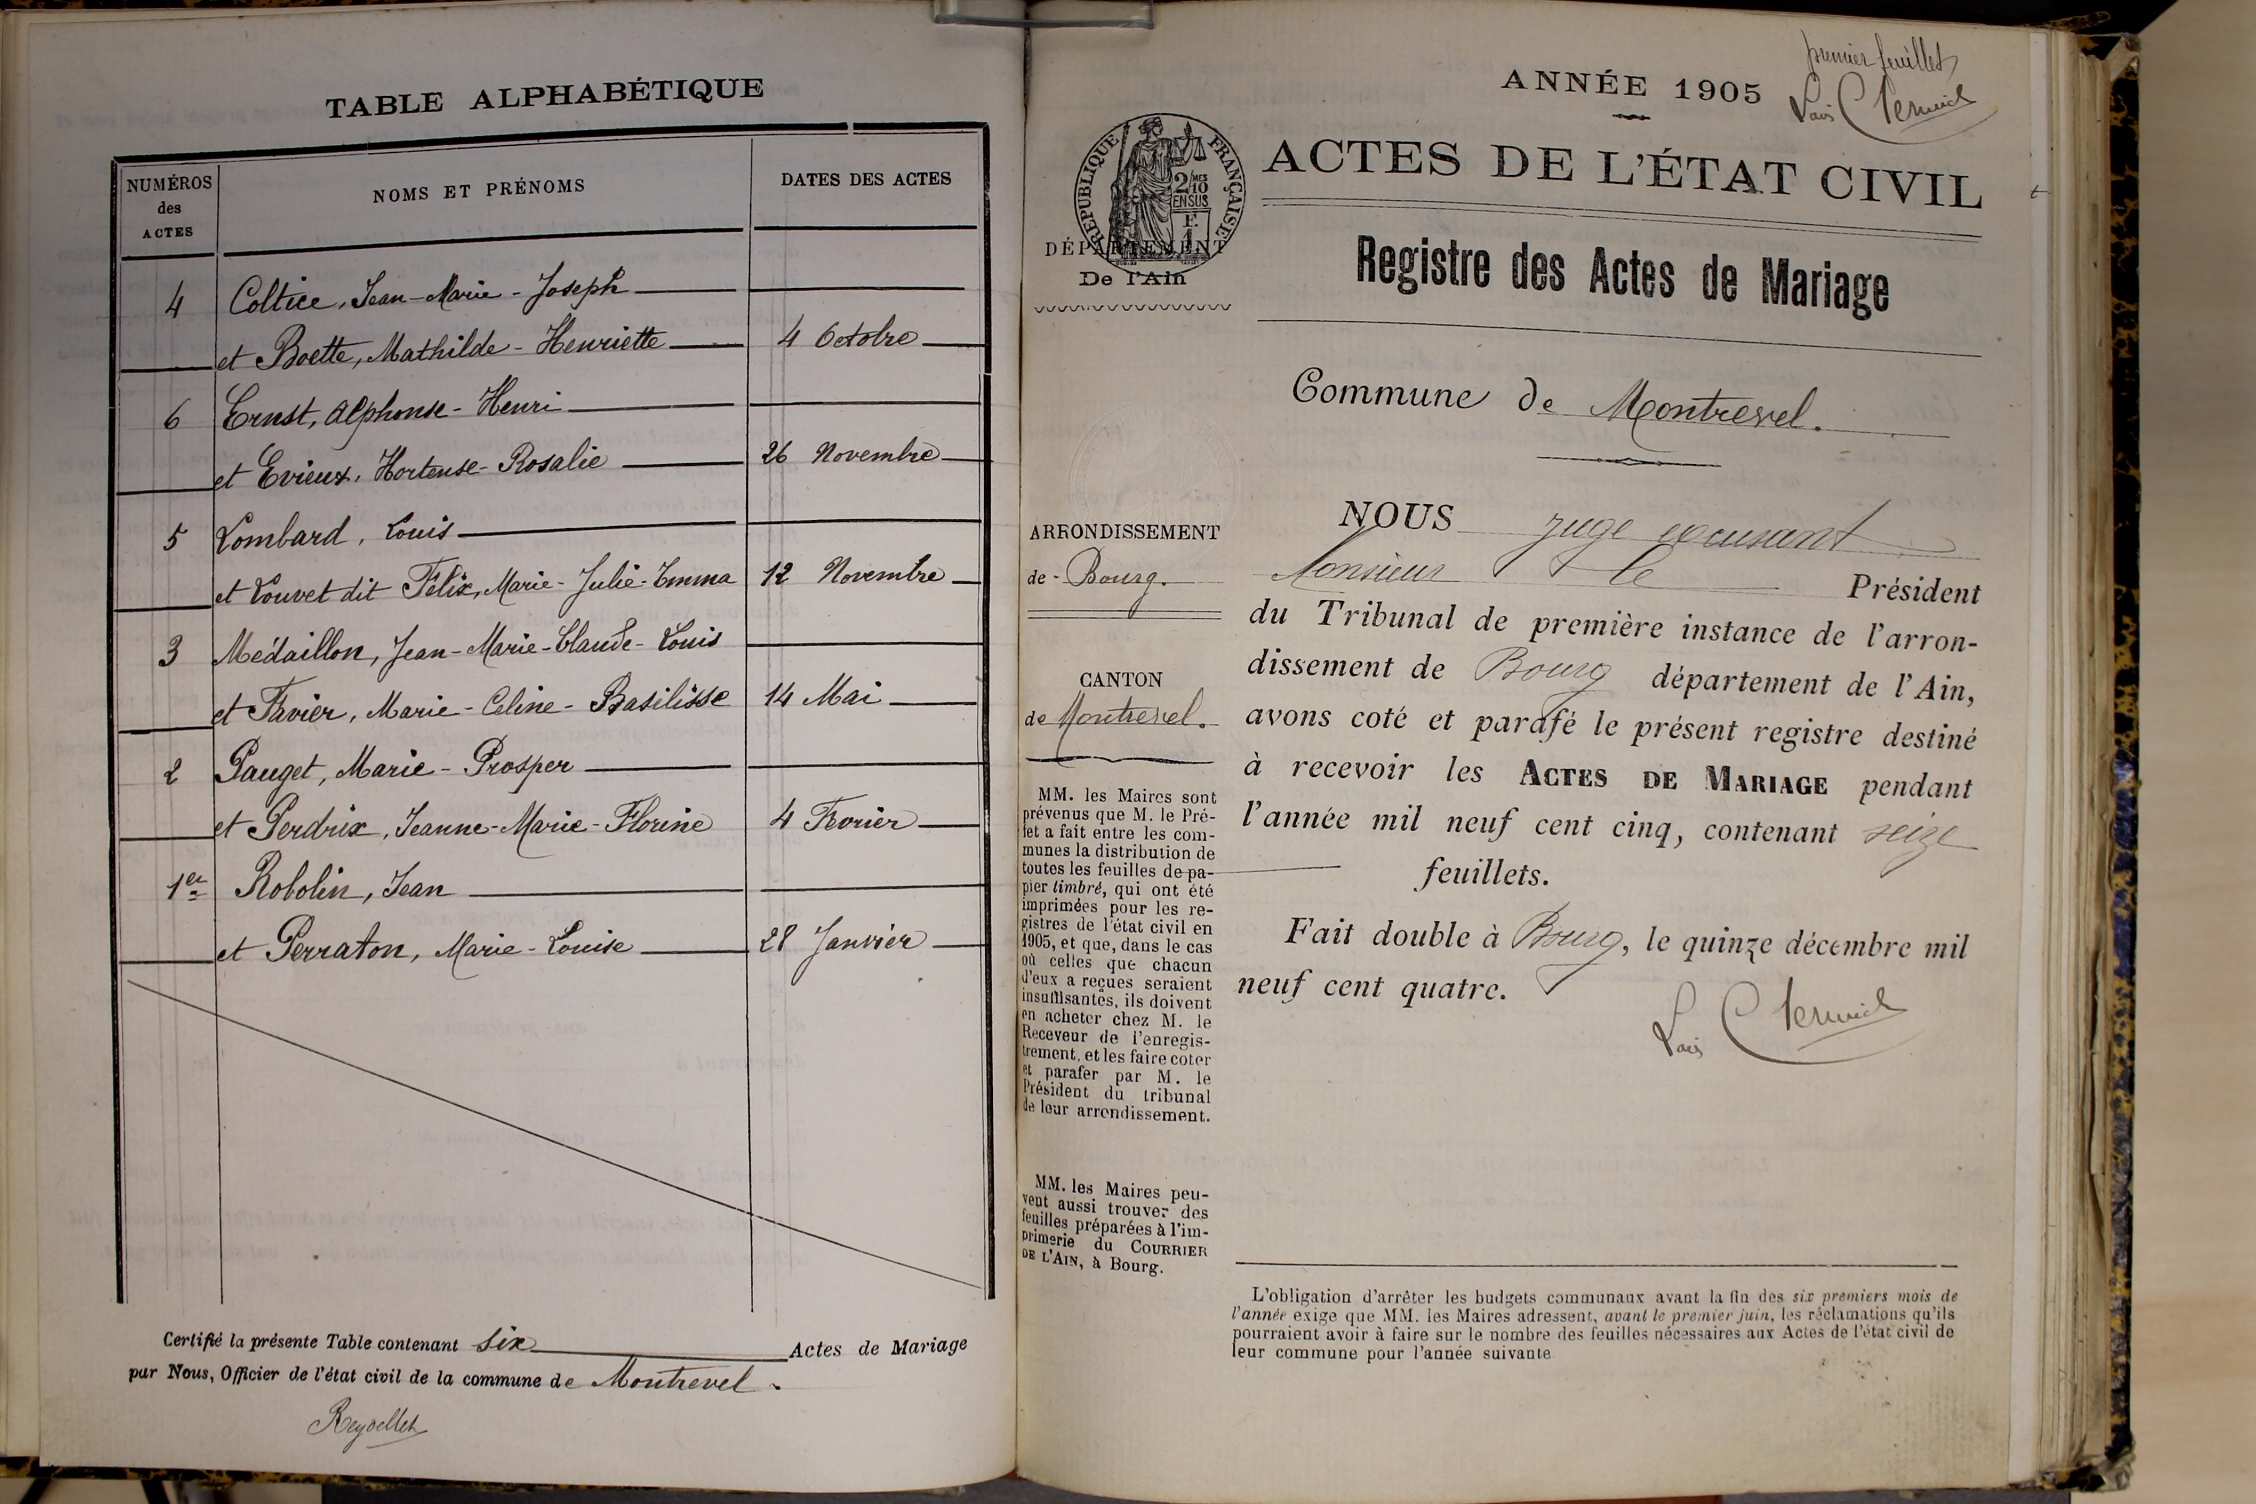 TABLE ALPHABÉTIQUE
NUMÉROS
des
ACTES
NOMS ET PRÉNOMS
DATES DES ACTES
4 Coltice, Jean-Marie-Joseph
et Boette, Mathilde-Henriette 4 Octobre
6 Ernst, Alphonse-Henri
et Evieux, Hortense-Rosalie 26 Novembre
5 Lombard, Louis
et Louvet dit Félix, Marie-Julie-Emma 12 Novembre
3 Médaillon, Jean-Marie-Claude-Louis
et Favier, Marie-Celine-Basilisse 14 Mai
2 Pauget, Marie-Prosper
et Perdrix, Jeanne-Marie-Florine 4 Février
1er Robolin, Jean
et Perraton, Marie-Louise 28 Janvier
Certifié la présente Table contenant six Actes de Mariage
par Nous, Officier de l'état civil de la commune de Montrevel.
Reydellet
premier feuillet
ANNÉE 1905
RÉPUBLIQUE FRANÇAISE
2/10
MES
EN SUS
F.
1
ACTES DE L'ÉTAT CIVIL
DÉPARTEMENT
De l'Ain
Registre des Actes de Mariage
Commune de Montrevel.
ARRONDISSEMENT
de Bourg.
CANTON
de Montrevel.
MM. les Maires sont
prévenus que M. le Pré-
fet a fait entre les com-
munes la distribution de
toutes les feuilles de pa-
pier timbré, qui ont été
imprimées pour les re-
gistres de l'état civil en
1905, et que, dans le cas
où celles que chacun
d'eux a reçues seraient
insuffisantes, ils doivent
en acheter chez M. le
Receveur de l'enregis-
trement, et les faire coter
et parafer par M. le
Président du tribunal
de leur arrondissement.
MM. les Maires peu-
vent aussi trouver des
feuilles préparées à l'im-
primerie du COURRIER
DE L'AIN, à Bourg.
NOUS juge
Monsieur le Président
du Tribunal de première instance de l'arron-
dissement de Bourg département de l'Ain,
avons coté et parafé le présent registre destiné
à recevoir les ACTES DE MARIAGE pendant
l'année mil neuf cent cinq, contenant seize
feuillets.
Fait double à Bourg, le quinze décembre mil
neuf cent quatre.
L'obligation d'arrêter les budgets communaux avant la fin des six premiers mois de
l'année exige que MM. les Maires adressent, avant le premier juin, les réclamations qu'ils
pourraient avoir à faire sur le nombre des feuilles nécessaires aux Actes de l'état civil de
leur commune pour l'année suivante